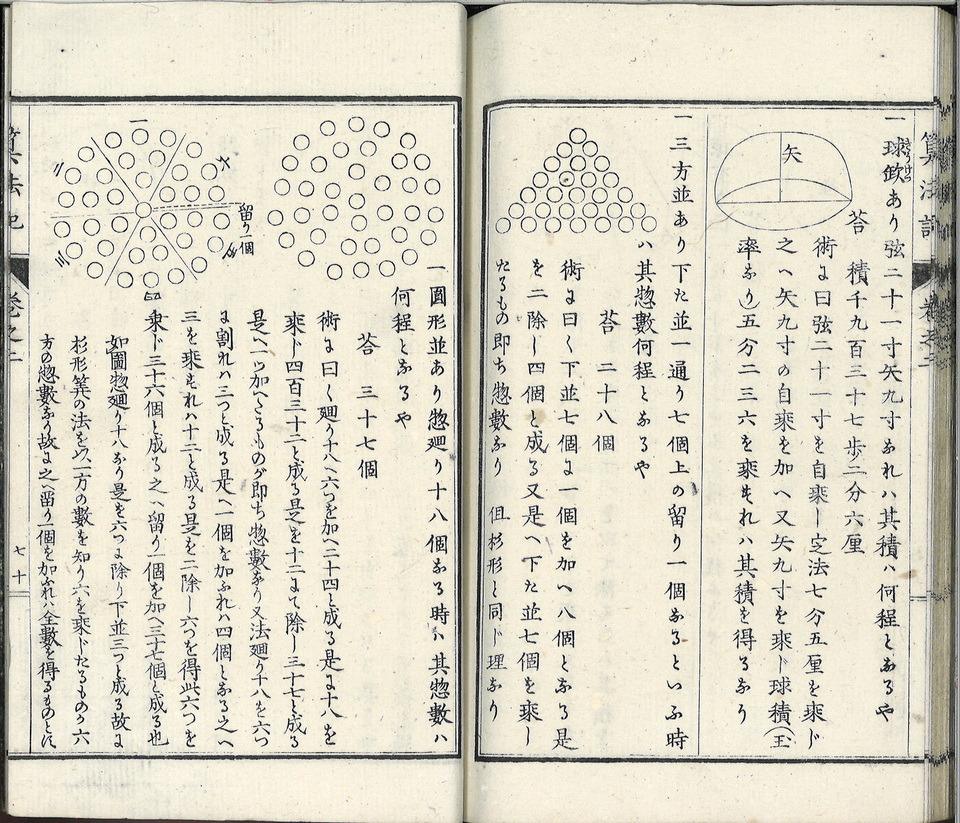 算法記
卷之二
一球欠あり弦二十一寸矢九寸なれハ其積ハ何程となるや
答　積千九百三十七歩二分六厘
術に曰弦二十一寸を自乗し定法七分五厘を乗じ
之へ矢九寸の自乗を加へ又矢九寸を乗じ球積(玉
率なり)五分二三六を乗ずれハ其積を得るなり
矢
一三方並あり下た並一通り七個上の留り一個なるといふ時
ハ其惣數何程となるや
答　二十八個
術に曰く下並七個に一個を加へ八個となる是
を二除し四個と成る又是へ下た並七個を乗し
たるもの即ち惣數なり　但杉形と同じ理なり
一圓形並あり惣廻り十八個なる時ハ其惣數ハ
何程となるや
答　三十七個
術に曰く廻り十八へ六つを加へ二十四と成る是に十八を
乗じ四百三十二と成る是を十二にて除し三十七と成る
是へ一ツ加へたるものが即ち惣數なり又法廻り十八を六つ
に割れハ三つと成る是へ一個を加ふれハ四個となる之へ
三を乗ずれハ十二と成る是を二除し六つを得此六つを
乗じ三十六個と成る之へ留り一個を加へ三十七個と成る也
如圖惣廻り十八なり是を六つに除り下並三つと成る故に
杉形算の法を以一方の數を知り六を乗じたるものが六
方の惣數なり故に之へ留り一個を加ふれハ全數を得るものとす
一
二
三
四
五
六
留り一個
算法記
卷之二
七十